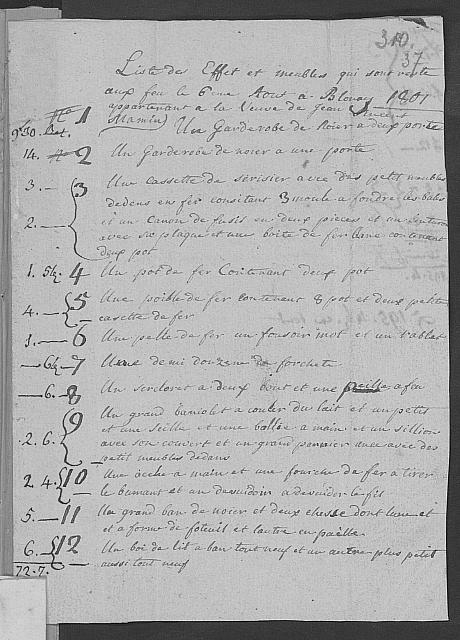 310.
37
Liste des Effet et meubles qui sont reste
aux feu le 6eme Aout a Blonay 1801
appartenant a la Veuve de Jean Vincent
Mamin
1 Un Garderobe de Noier a deux porte
14. 2 Un Garderobe de noier a une porte
3. 3 Une cassette de serisier avec des petit meubles
dedens en fer consitant 3 moule a fondre les bales
2. et un Canon de fusis en deux pieces et un
avec sa plaque et une boite de fer blanc contenant
deux pot
1. 5½. 4 Un pot de fer Contenant deux pot
4. 5 Une poille de fer contenent 8 pot et deux petite
casette de fer
1. 6 Une pelle de fer un fousoir mot et un rablet
6½ 7 Une demi douzene de forchete
6. 8 Un sercloret a deux bout et une a feu
9 Un grand baniolet a couler du lait et un petit
2. 6. et une seille et une a main et un sillion
avec son couvert et un grand pannier avec des
petit meubles dedans
2. 4. 10 Une beche a main et une fourche de fer a tirer
le bumant et un devudoir a devuder le fil
5. 11 Un grand ban de noier et deux chesse dont lune et
et a forme de foteuil et lautre en paille
6. 12 Un boi de lit a ban tout neuf et un autre plus petit
72. 7. aussi tout neuf